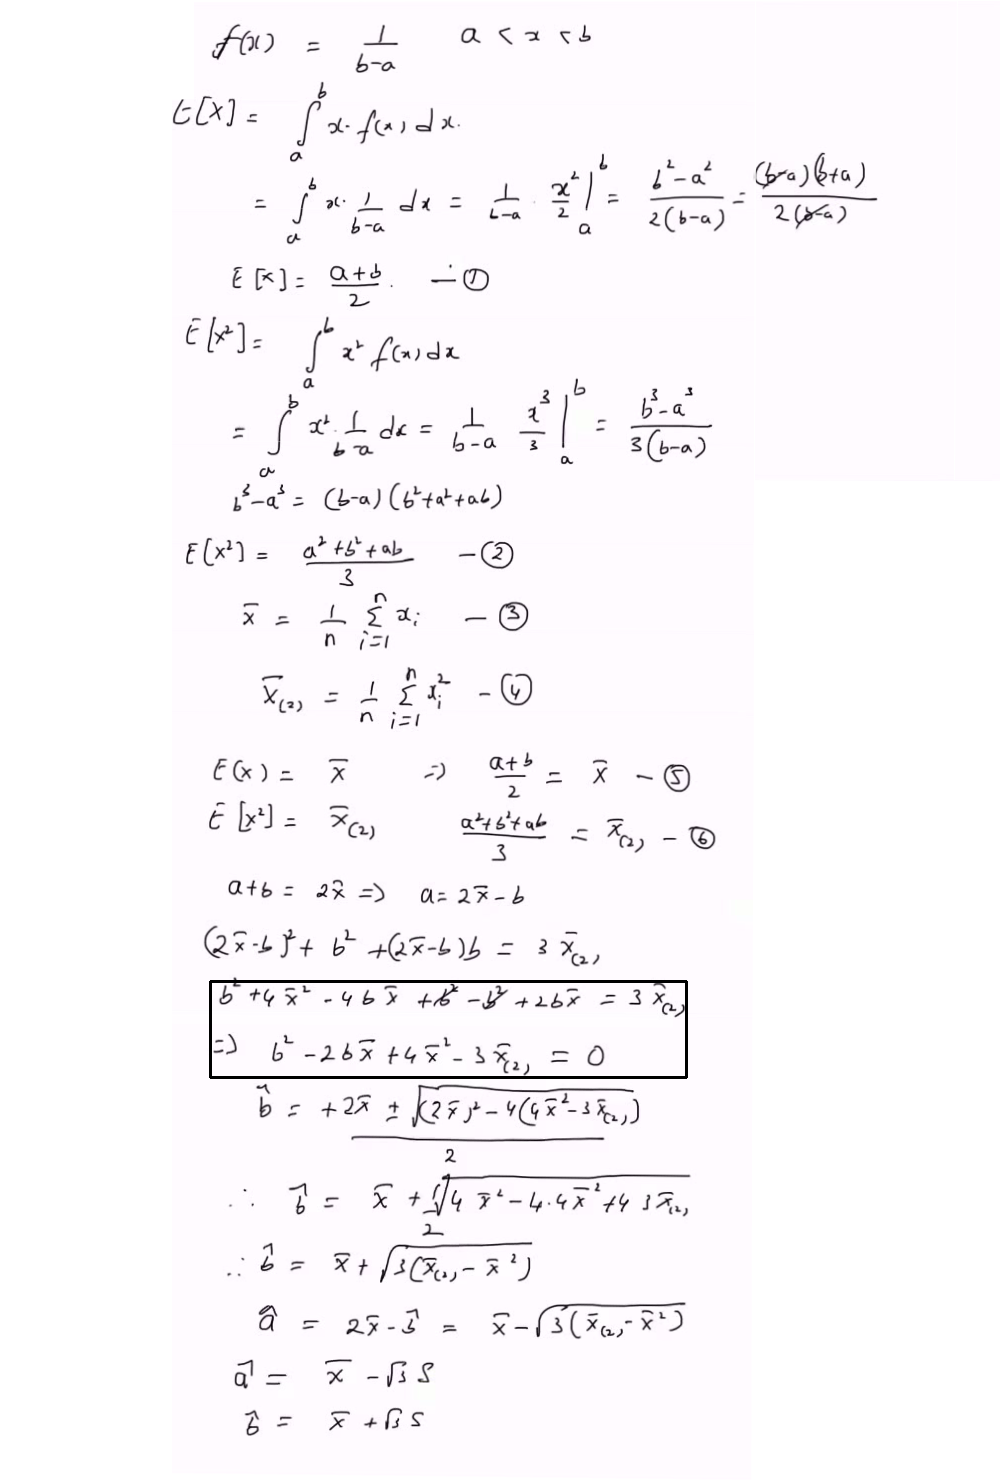 f(x) = 1/(b-a) a < x < b
E[X] = ∫_a^b x. f(x) dx.
= ∫_a^b x. 1/(b-a) dx = 1/(b-a) . x²/2 |_a^b = (b²-a²)/(2(b-a)) = ((b-a)(b+a))/(2(b-a))
E[x] = (a+b)/2. — ①
E[x²] = ∫_a^b x² f(x) dx
= ∫_a^b x². 1/(b-a) dx = 1/(b-a) x³/3 |_a^b = (b³-a³)/(3(b-a))
b³-a³ = (b-a)(b²+a²+ab)
E[x²] = (a²+b²+ab)/3 — ②
x̄ = 1/n Σ_{i=1}^n x_i — ③
x̄_(2) = 1/n Σ_{i=1}^n x_i² — ④
E(x) = x̄ => (a+b)/2 = x̄ — ⑤
E[x²] = x̄_(2) (a²+b²+ab)/3 = x̄_(2) — ⑥
a+b = 2x̄ => a = 2x̄-b
(2x̄-b)² + b² + (2x̄-b)b = 3x̄_(2)
b² + 4x̄² - 4bx̄ + b² - b² + 2bx̄ = 3x̄_(2)
=> b² - 2bx̄ + 4x̄² - 3x̄_(2) = 0
b̂ = (+2x̄ ± √((2x̄)² - 4(4x̄² - 3x̄_(2))))/2
∴ b̂ = x̄ + √(4x̄² - 4.4x̄² + 4 3x̄_(2))/2
∴ b̂ = x̄ + √(3(x̄_(2) - x̄²))
â = 2x̄ - b̂ = x̄ - √(3(x̄_(2) - x̄²))
â = x̄ - √3 S
b̂ = x̄ + √3 S